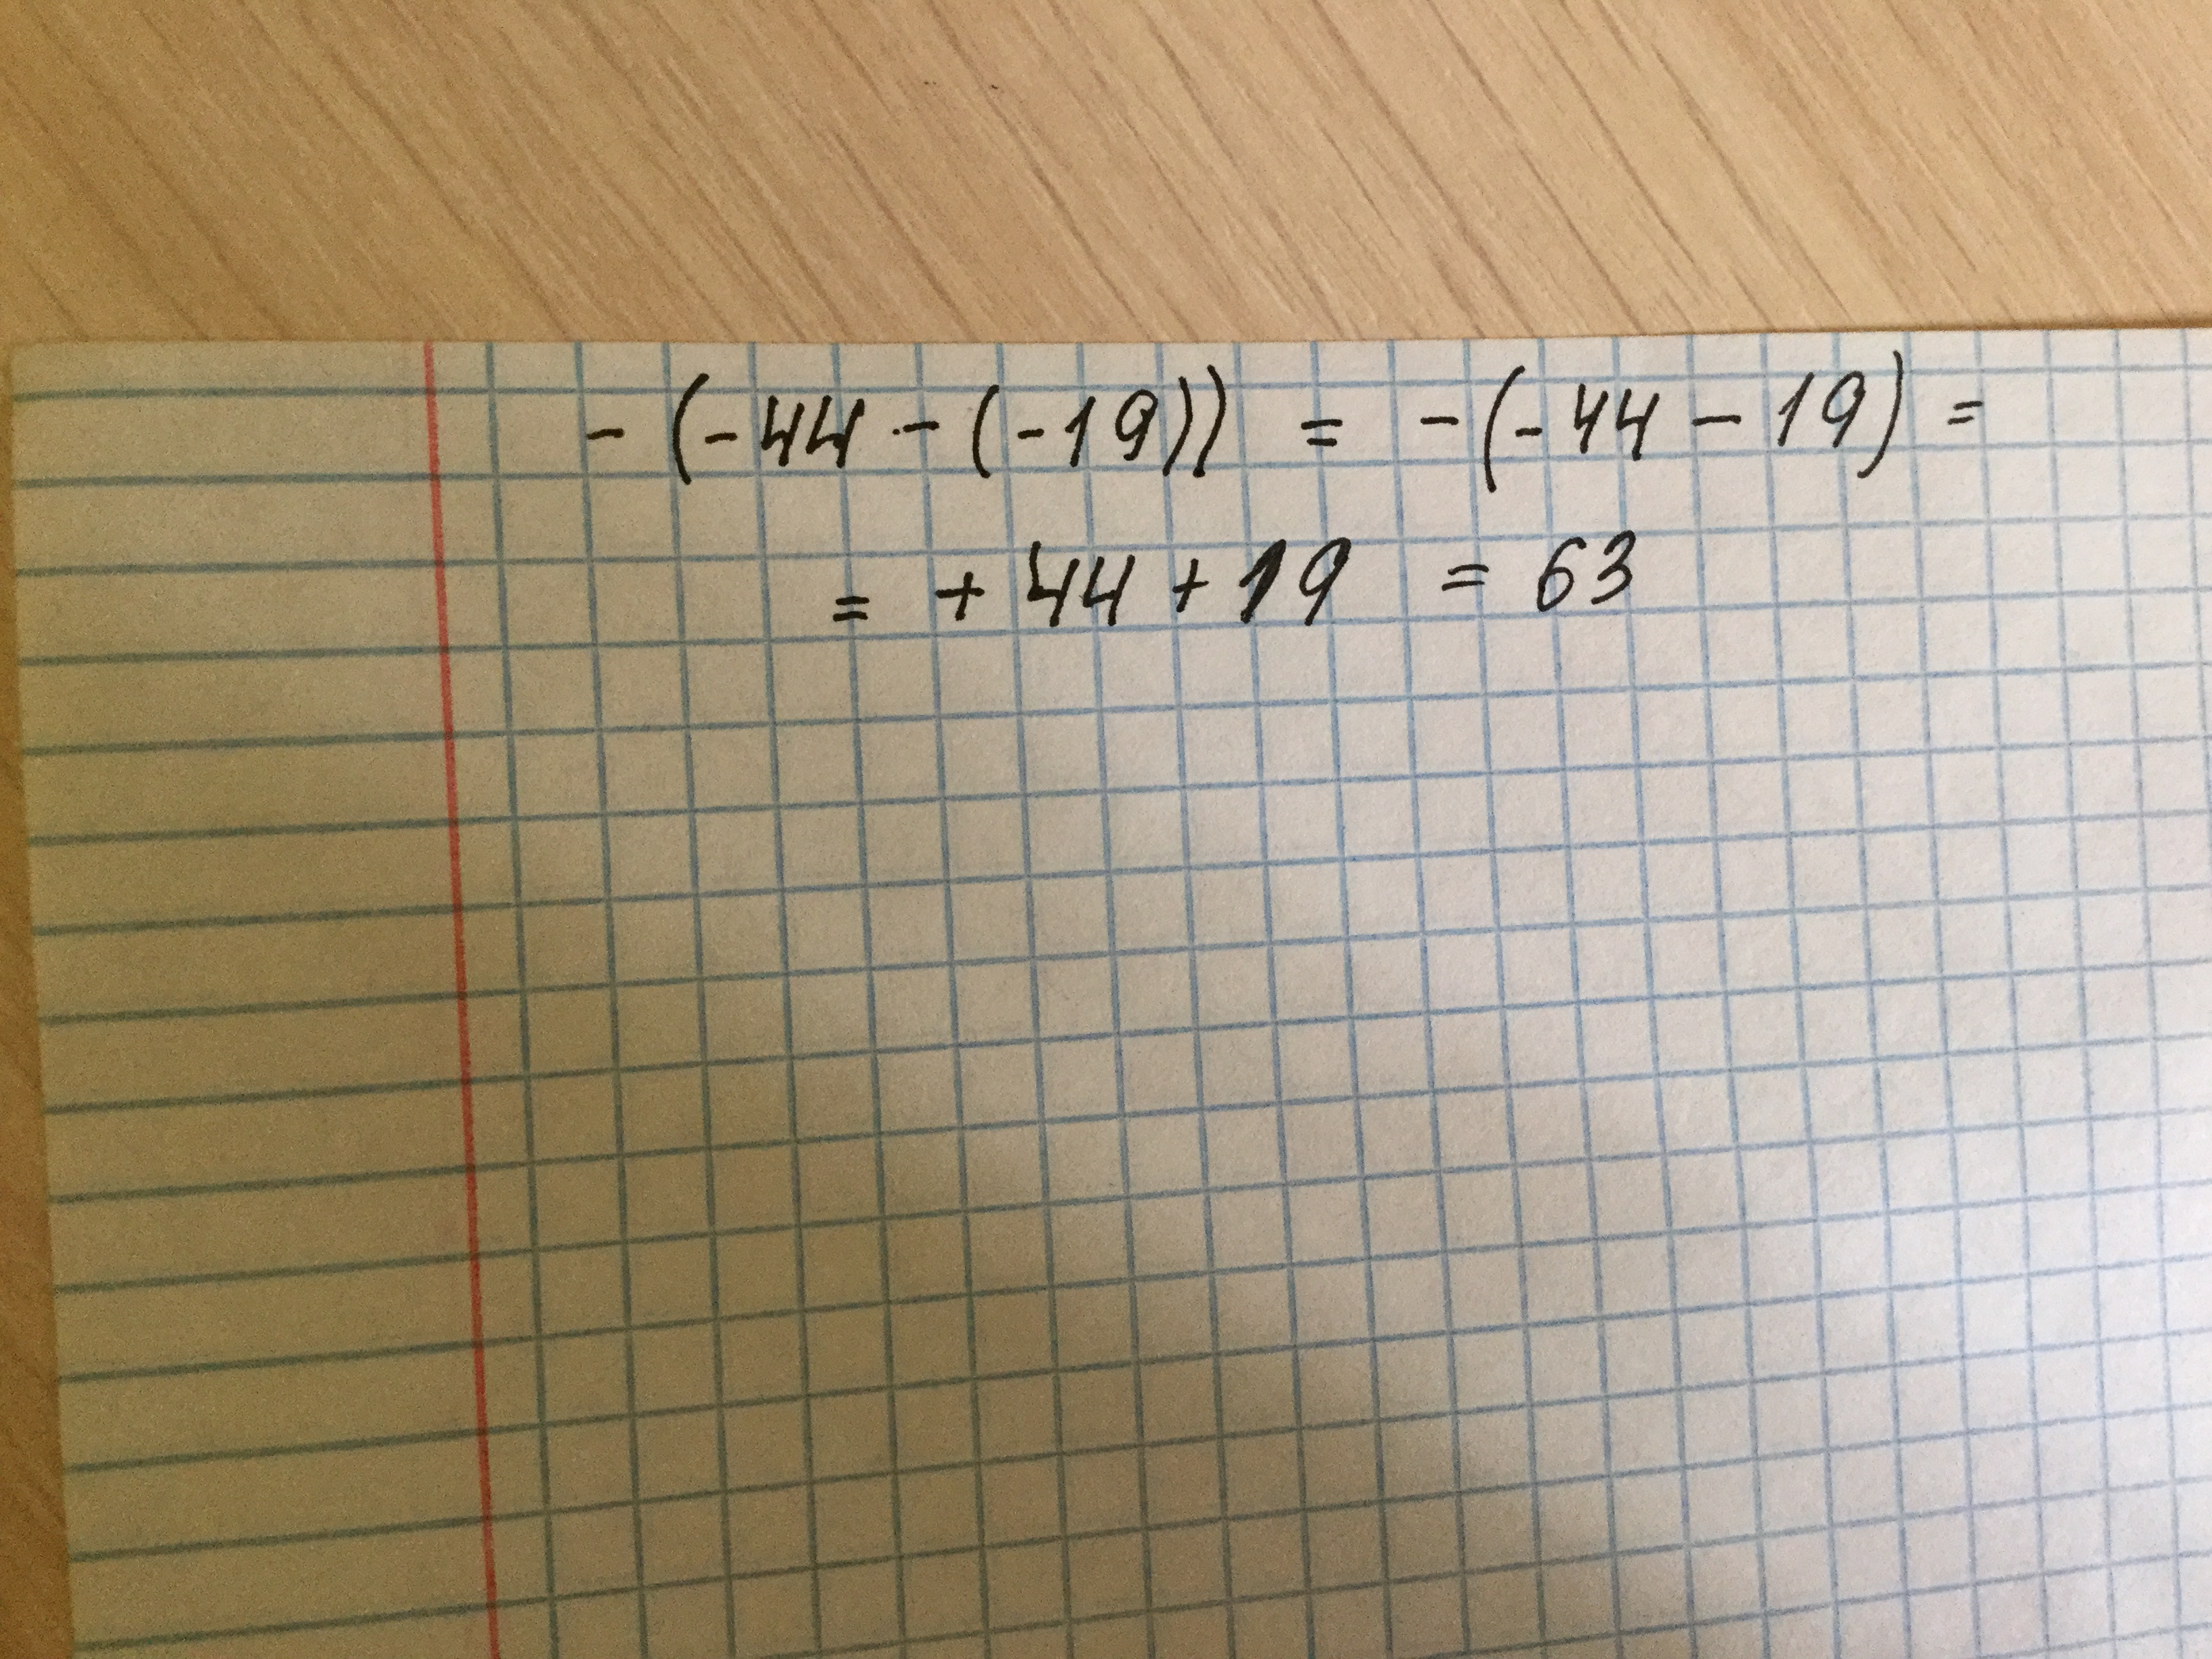 -(-44-(-19)) = -(-44-19) =
= +44+19 = 63